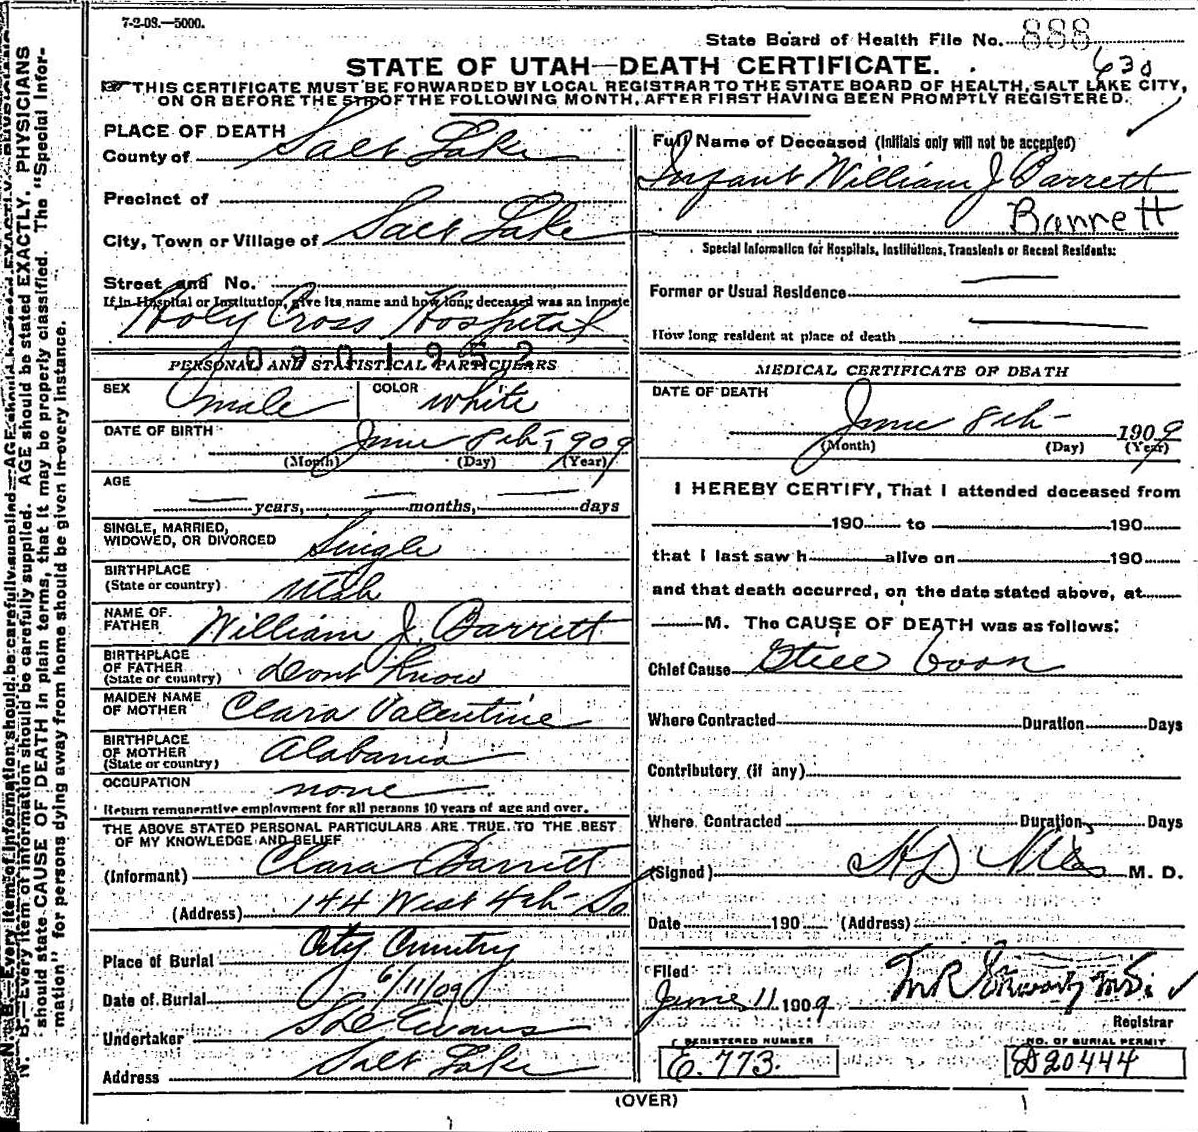 7-2-08.—5000.
State Board of Health File No. 888
630
STATE OF UTAH—DEATH CERTIFICATE.
THIS CERTIFICATE MUST BE FORWARDED BY LOCAL REGISTRAR TO THE STATE BOARD OF HEALTH, SALT LAKE CITY,
ON OR BEFORE THE 5TH OF THE FOLLOWING MONTH, AFTER FIRST HAVING BEEN PROMPTLY REGISTERED.
N. B.—Every item of information should be carefully supplied. AGE should be stated EXACTLY. PHYSICIANS
should state CAUSE OF DEATH in plain terms, that it may be properly classified. The "Special Infor-
mation" for persons dying away from home should be given in every instance.
PLACE OF DEATH
County of Salt Lake
Precinct of
City, Town or Village of Salt Lake
Street and No.
If in Hospital or Institution, give its name and how long deceased was an inmate
Holy Cross Hospital
0901952
PERSONAL AND STATISTICAL PARTICULARS
SEX male COLOR white
DATE OF BIRTH June 8th 1909
(Month) (Day) (Year)
AGE
years, months, days
SINGLE, MARRIED,
WIDOWED, OR DIVORCED Single
BIRTHPLACE
(State or country) Utah
NAME OF
FATHER William J. Barrett
BIRTHPLACE
OF FATHER
(State or country) Dont Know
MAIDEN NAME
OF MOTHER Clara Valentine
BIRTHPLACE
OF MOTHER
(State or country) Alabama
OCCUPATION none
Return remunerative employment for all persons 10 years of age and over.
THE ABOVE STATED PERSONAL PARTICULARS ARE TRUE TO THE BEST
OF MY KNOWLEDGE AND BELIEF
(Informant) Clara Barrett
(Address) 144 West 4th So
Place of Burial City
Date of Burial 6/11/09
Undertaker Evans
Address Salt Lake
Full Name of Deceased (Initials only will not be accepted)
Infant William J Barrett
Barrett
Special Information for Hospitals, Institutions, Transients or Recent Residents:
Former or Usual Residence
How long resident at place of death
MEDICAL CERTIFICATE OF DEATH
DATE OF DEATH
June 8th 1909
(Month) (Day) (Year)
I HEREBY CERTIFY, That I attended deceased from
190 to 190
that I last saw h alive on 190
and that death occurred, on the date stated above, at
M. The CAUSE OF DEATH was as follows:
Chief Cause Still born
Where Contracted Duration Days
Contributory (if any)
Where Contracted Duration Days
(Signed) HD Niles M. D.
Date 190 (Address)
Filed
June 11 1909
Registrar
REGISTERED NUMBER
E.773.
NO. OF BURIAL PERMIT
D20444
(OVER)